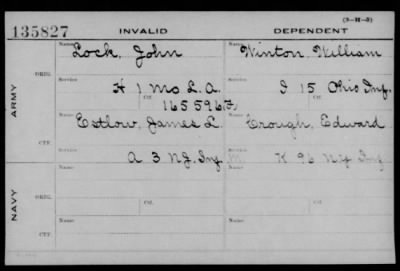 (3-H-5)
135827 INVALID DEPENDENT
Name Lock, John Name Winton, William
ORIG.
Service H 1 Mo L. A. Service I 15 Ohio Inf.
Ctf. 165596 Ctf.
ARMY
Name Estlow, James L. Name Crough, Edward
CTF.
Service A 3 NJ. Inf Service K 96 N.Y. Inf.
Name Name
ORIG.
Service Ctf. Service Ctf.
NAVY
Name Name
CTF.
Service Service